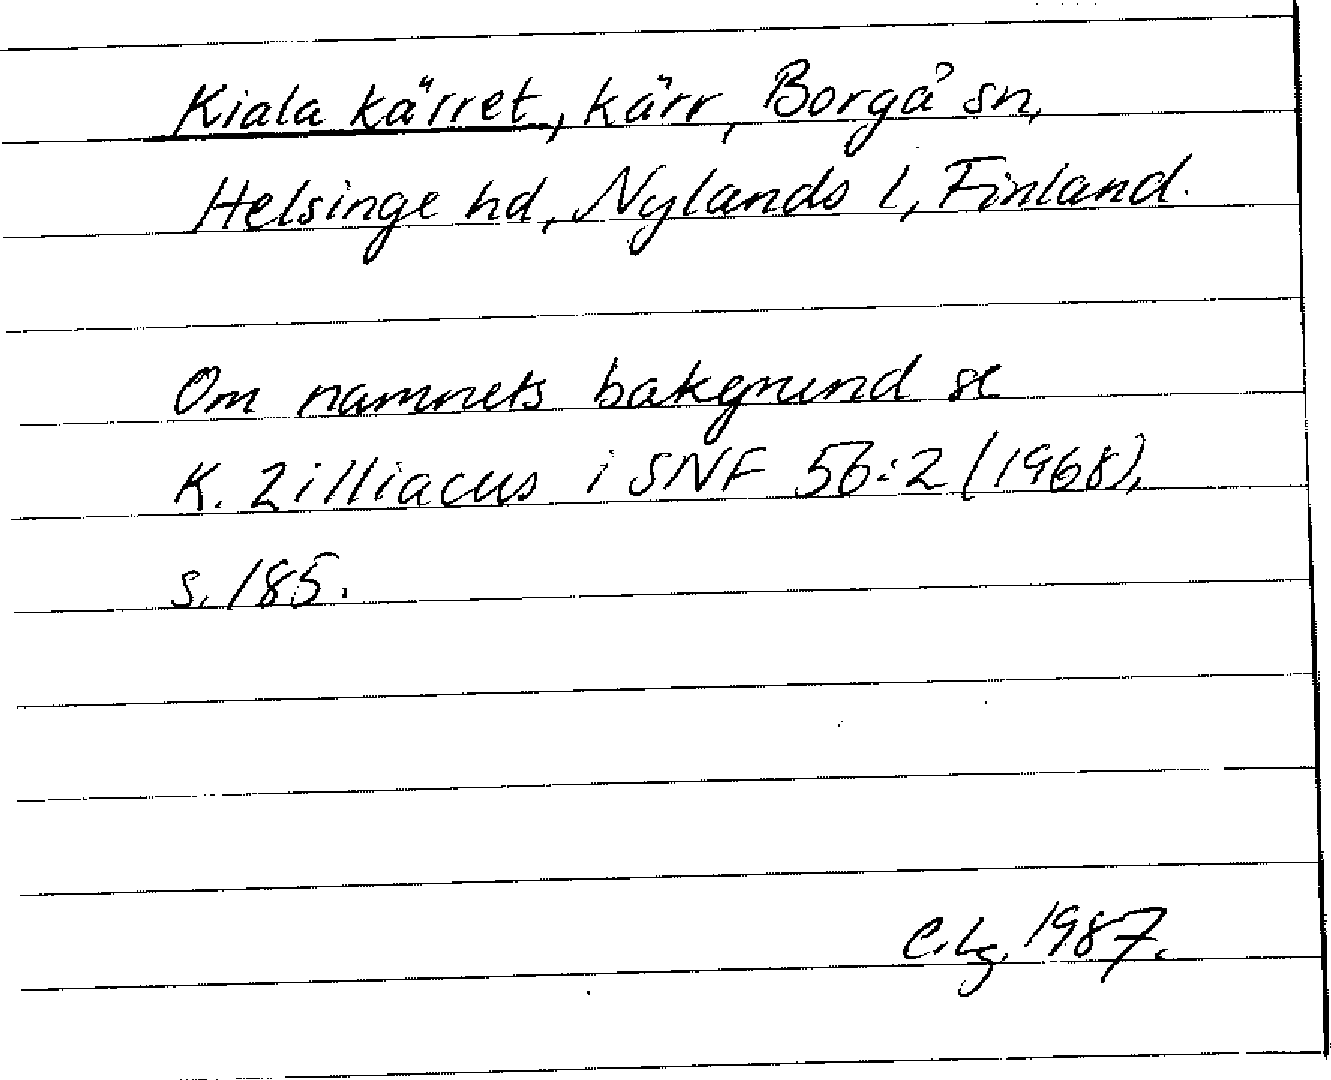 Kiala kärret, kärr, Borgå sn,
Helsinge hd, Nylands l, Finland.
Om namnets bakgrund se
K. Zilliacus i SNF 56:2 (1968),
s. 185.
C.Lg. 1987.